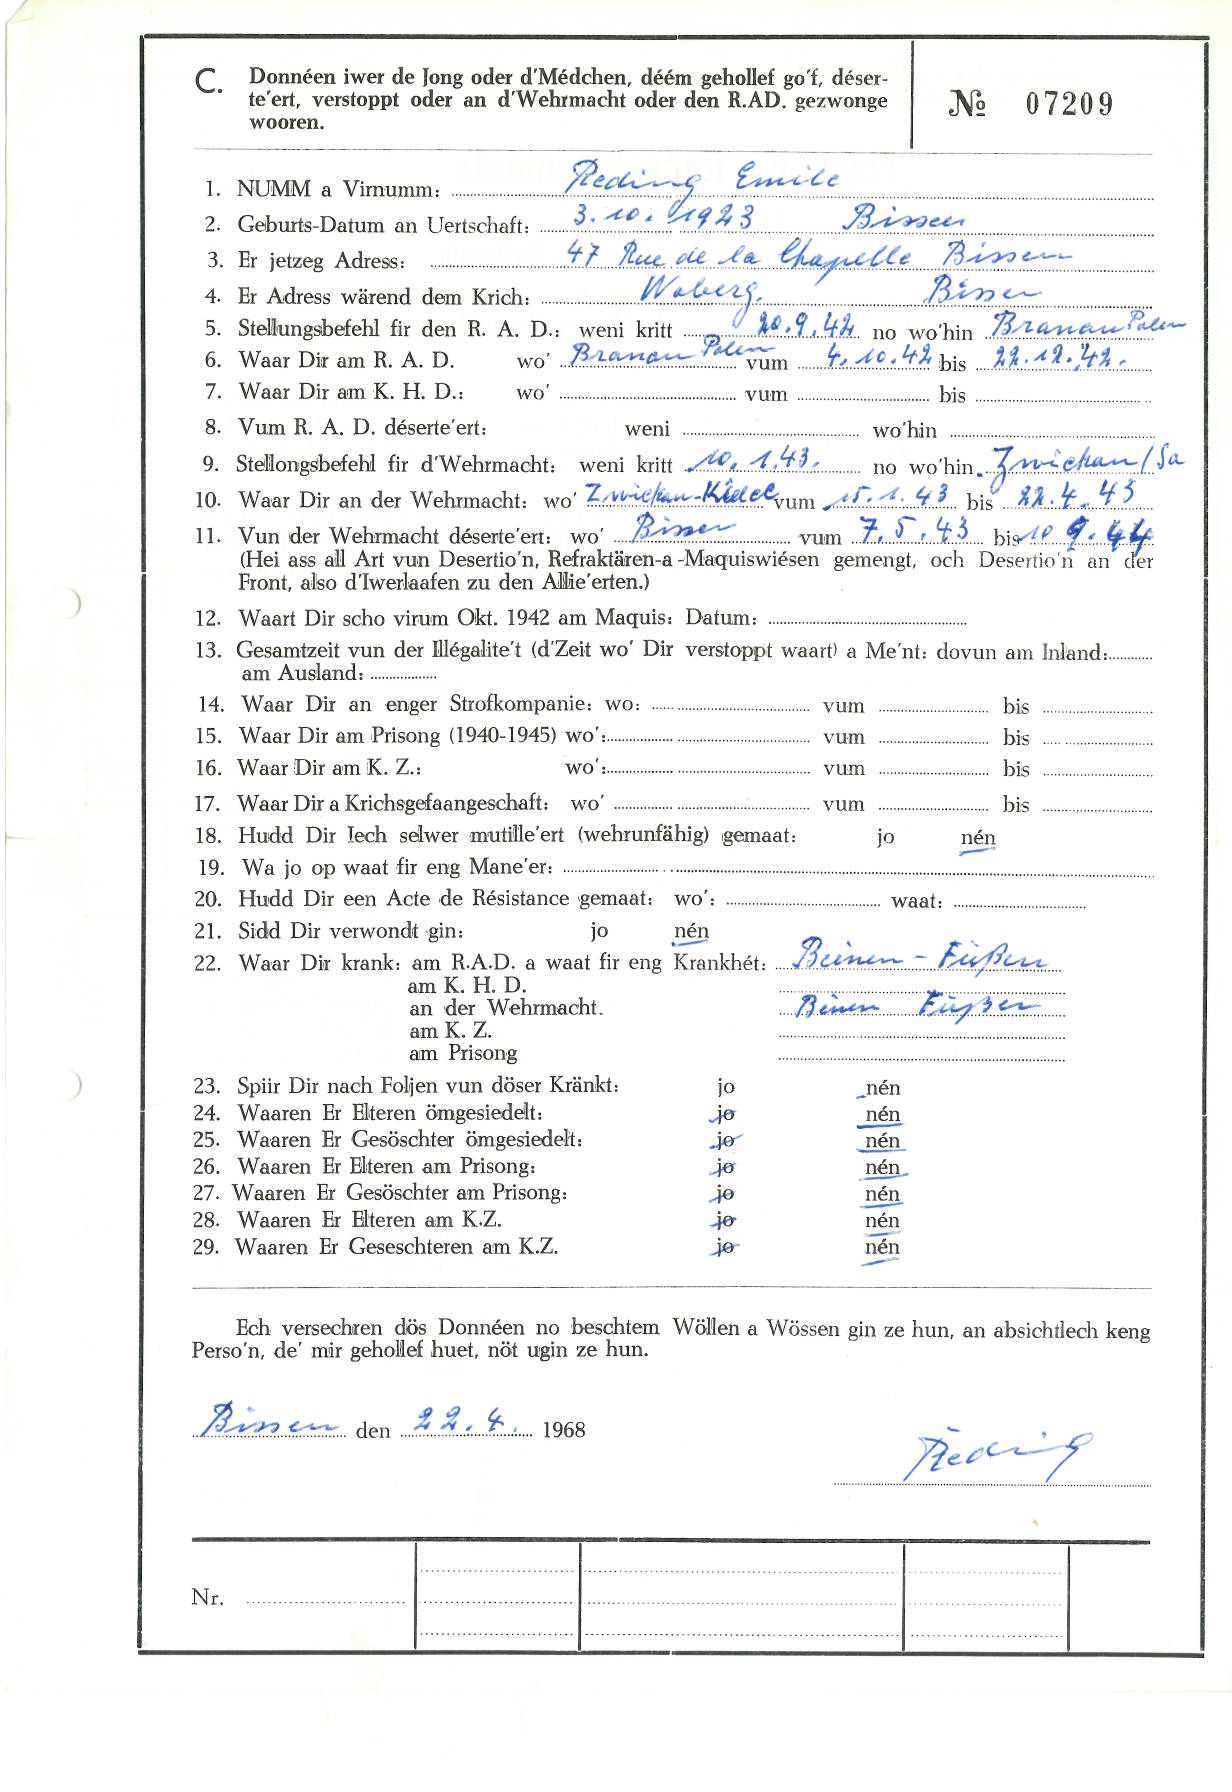 C. Donnéen iwer de Jong oder d'Médchen, déém gehollef go'f, déser-
te'ert, verstoppt oder an d'Wehrmacht oder den R.AD. gezwonge
wooren.
№ 07209
1. NUMM a Virnumm: Reding Emile
2. Geburts-Datum an Uertschaft: 3.10.1923 Bissen
3. Er jetzeg Adress: 47 Rue de la Chapelle Bissen
4. Er Adress wärend dem Krich: Woberg. Bissen
5. Stellungsbefehl fir den R. A. D.: weni kritt 20.9.42 no wo'hin Branau Polen
6. Waar Dir am R. A. D. wo' Branau Polen vum 4.10.42 bis 22.12.42.
7. Waar Dir am K. H. D.: wo' vum bis
8. Vum R. A. D. déserte'ert: weni wo'hin
9. Stellongsbefehl fir d'Wehrmacht: weni kritt 10.1.43. no wo'hin Zwickau/Sa
10. Waar Dir an der Wehrmacht: wo' Zwickau- vum 15.1.43 bis 22.4.43
11. Vun der Wehrmacht déserte'ert: wo' Bissen vum 7.5.43 bis 10 9.44
(Hei ass all Art vun Desertio'n, Refraktären-a-Maquiswiésen gemengt, och Desertio'n an der
Front, also d'Iwerlaafen zu den Allie'erten.)
12. Waart Dir scho virum Okt. 1942 am Maquis: Datum:
13. Gesamtzeit vun der Illégalite't (d'Zeit wo' Dir verstoppt waart) a Me'nt: dovun am Inland:
am Ausland:
14. Waar Dir an enger Strofkompanie: wo: vum bis
15. Waar Dir am Prisong (1940-1945) wo': vum bis
16. Waar Dir am K. Z.: wo': vum bis
17. Waar Dir a Krichsgefaangeschaft: wo' vum bis
18. Hudd Dir Iech selwer mutille'ert (wehrunfähig) gemaat: jo nén
19. Wa jo op waat fir eng Mane'er:
20. Hudd Dir een Acte de Résistance gemaat: wo': waat:
21. Sidd Dir verwondt gin: jo nén
22. Waar Dir krank: am R.A.D. a waat fir eng Krankhét: Beinen - Füßen
am K. H. D.
an der Wehrmacht. Beinen Füßen
am K. Z.
am Prisong
23. Spiir Dir nach Foljen vun döser Kränkt: jo nén
24. Waaren Er Elteren ömgesiedelt: jo nén
25. Waaren Er Gesöschter ömgesiedelt: jo nén
26. Waaren Er Elteren am Prisong: jo nén
27. Waaren Er Gesöschter am Prisong: jo nén
28. Waaren Er Elteren am K.Z. jo nén
29. Waaren Er Geseschteren am K.Z. jo nén
Ech versechren dös Donnéen no beschtem Wöllen a Wössen gin ze hun, an absichtlech keng
Perso'n, de' mir gehollef huet, nöt ugin ze hun.
Bissen den 22.4. 1968
Reding
Nr.